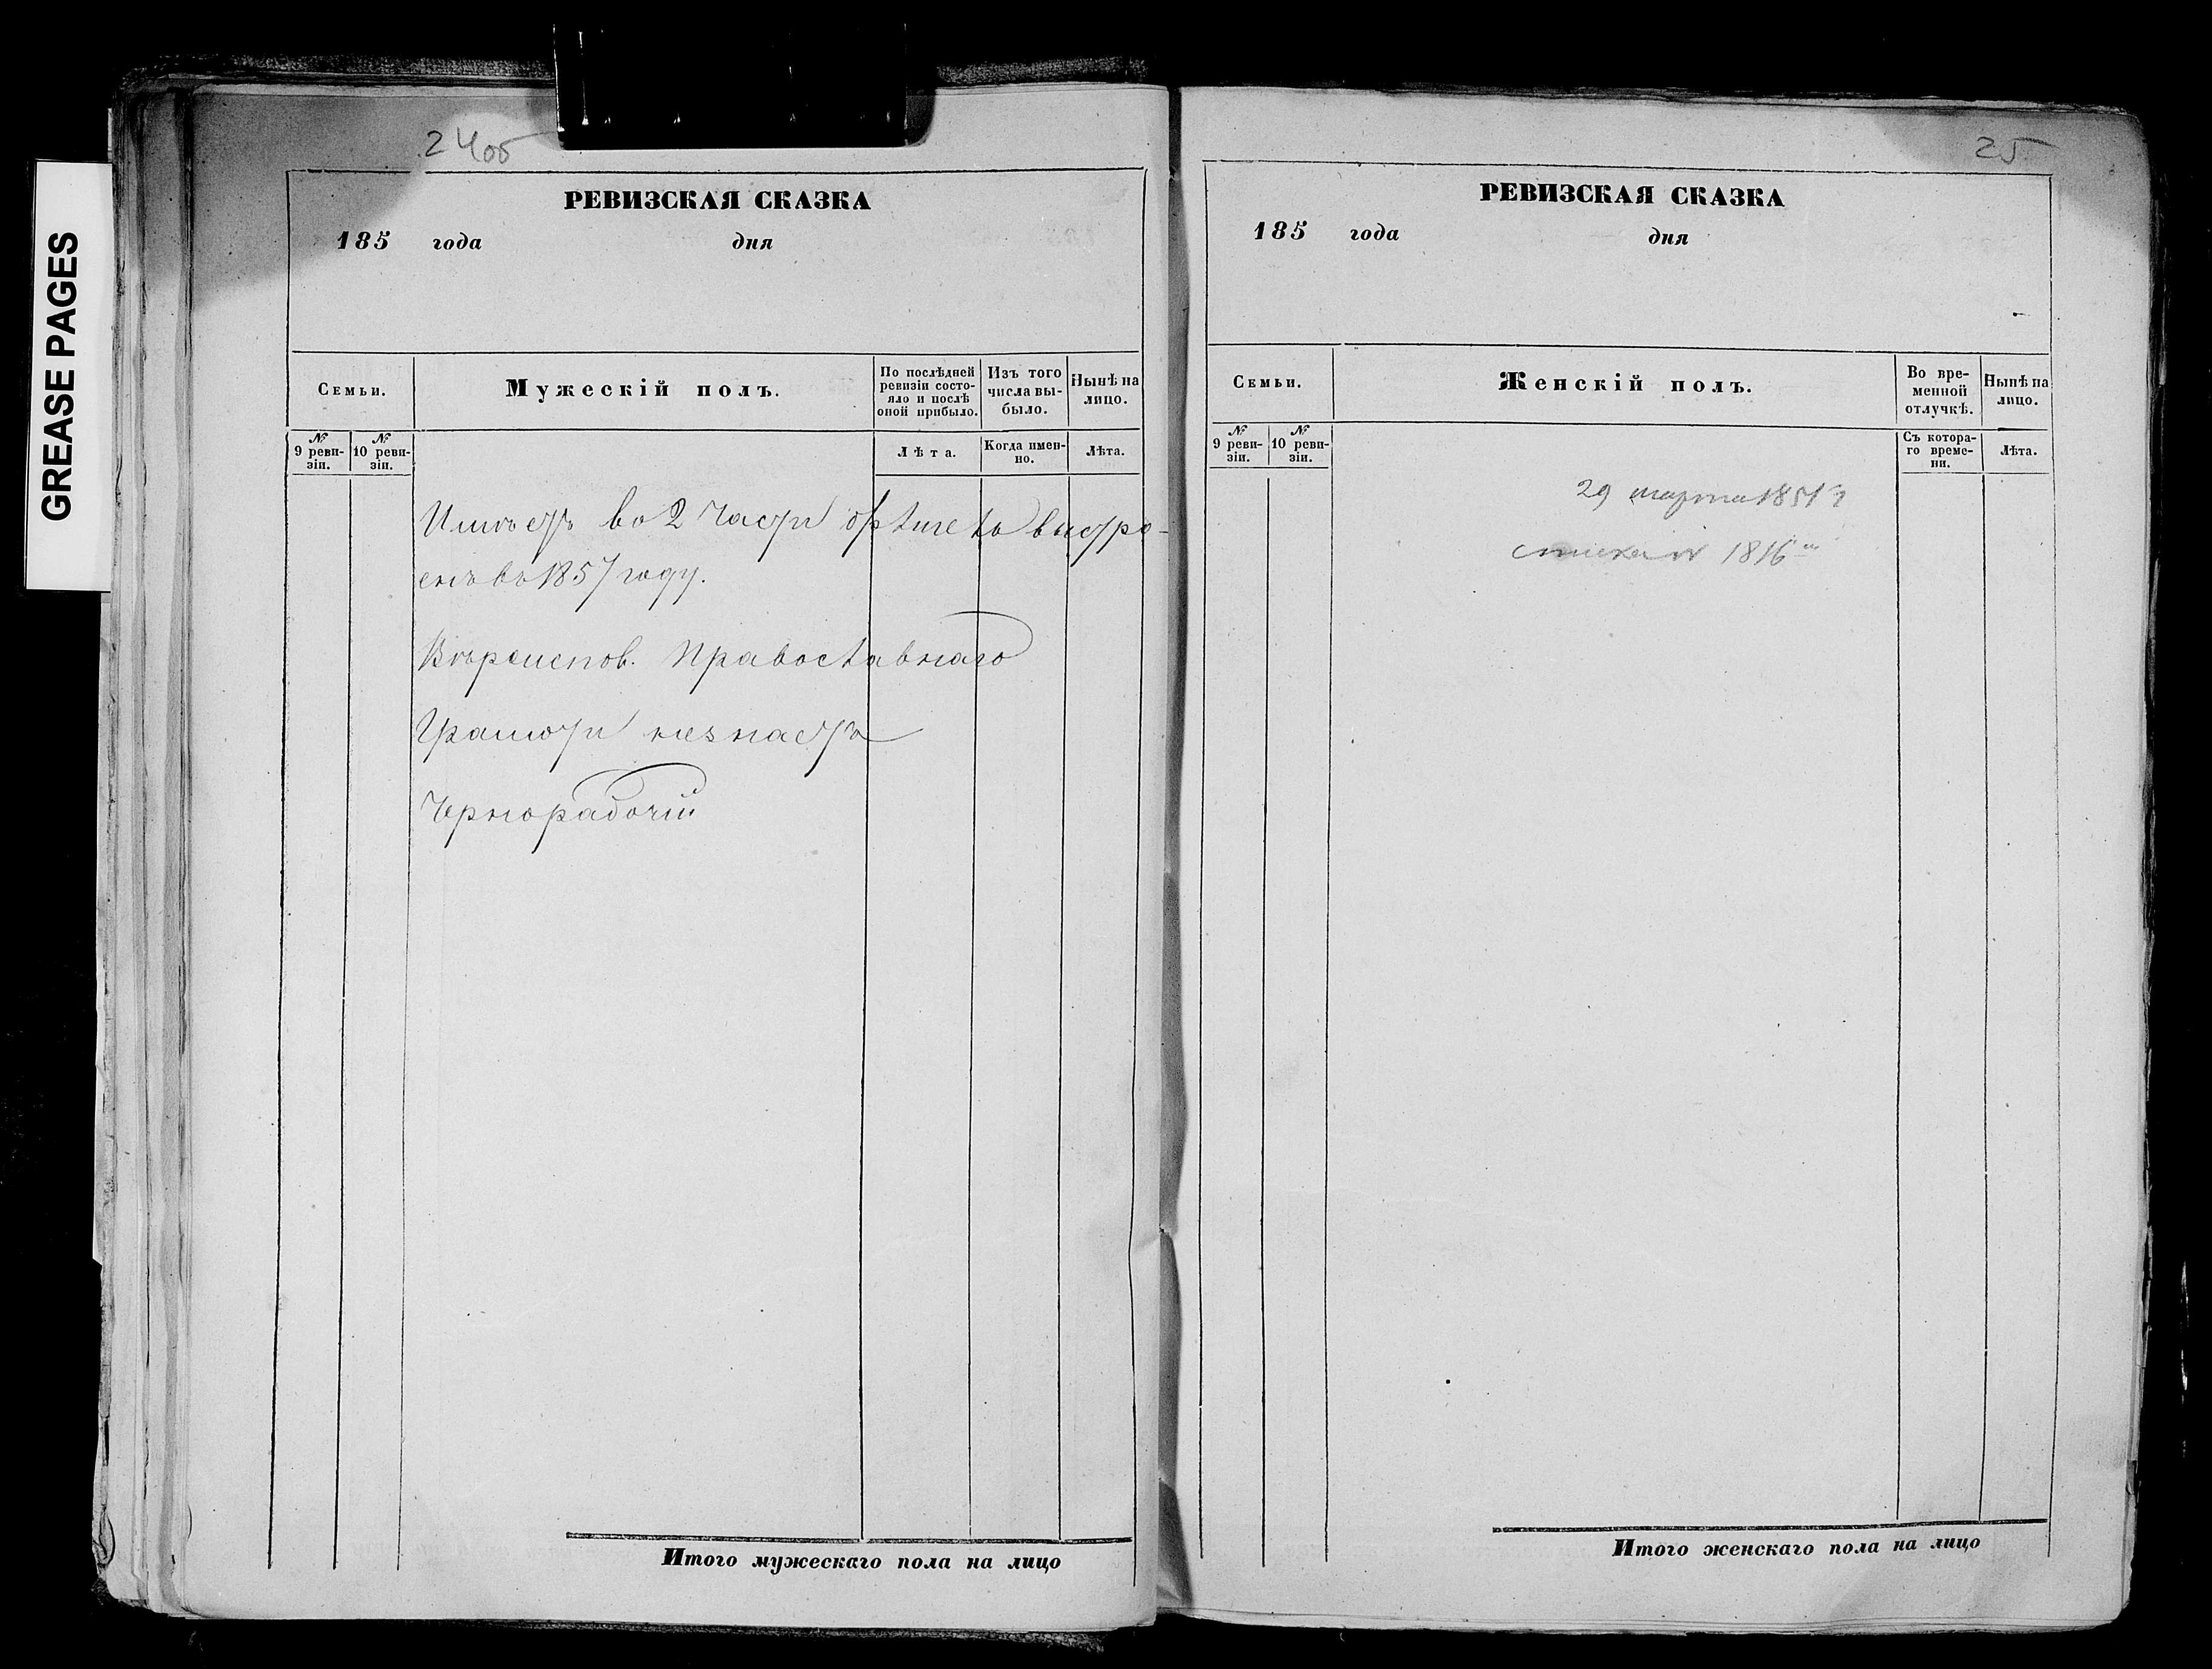 GREASE PAGES
24об
РЕВИЗСКАЯ СКАЗКА
185 года дня
Семьи.
Мужескій полъ.
По послѣдней ревизіи состояло и послѣ оной прибыло.
Изъ того числа выбыло.
Нынѣ на лицо.
№ 9 ревизіи.
№ 10 ревизіи.
Лѣта.
Когда именно.
Лѣта.
Имѣетъ во 2 части выстро-
енъ въ 1857 году.
Вѣроиспов. Православнаго
Грамоти незнаетъ
Чернорабочій
Итого мужескаго пола на лицо
25
РЕВИЗСКАЯ СКАЗКА
185 года дня
Семьи.
Женскій полъ.
Во временной отлучкѣ.
Нынѣ на лицо.
№ 9 ревизіи.
№ 10 ревизіи.
Съ котораго времени.
Лѣта.
29 марта
Итого женскаго пола на лицо